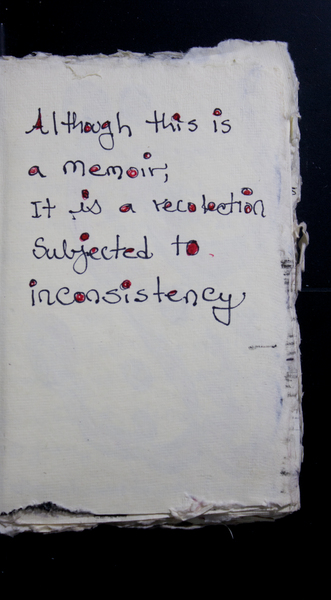 Although this is
a memoir;
It is a recolection
Subjected to
inconsistency